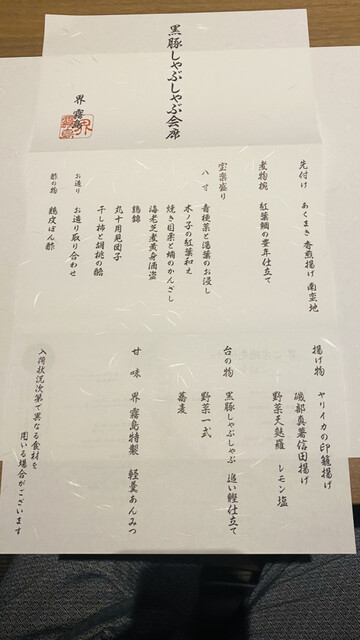 黒豚しゃぶしゃぶ会席
界 霧島
先付け あくまき香煎揚げ 南蛮地
煮物椀 紅葉鯛の豊年仕立て
宝楽盛り
八寸 青梗菜と湯葉のお浸し
木ノ子の紅葉和え
焼き目栗と のかんざし
海老芝煮黄身酒盗
鶏錦
丸十月見団子
干し柿と胡桃の
お造り お造り取り合わせ
酢の物 鶏皮ぽん酢
揚げ物 ヤリイカの印籠揚げ
磯部真薯信田揚げ
野菜天麩羅 レモン塩
台の物 黒豚しゃぶしゃぶ 追い鰹仕立て
野菜一式
蕎麦
甘味 界 霧島特製 軽羹あんみつ
入荷状況次第で異なる食材を
用いる場合がございます